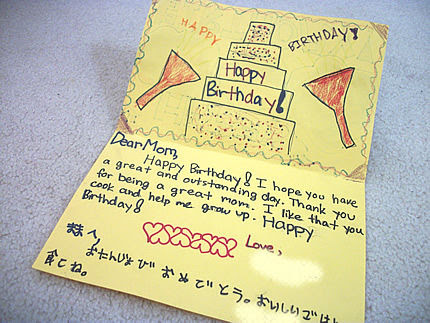 HAPPY BIRTHDAY!
Happy
Birthday!
Dear Mom,
Happy Birthday! I hope you have
a great and outstanding day. Thank you
for being a great mom. I like that you
cook and help me grow up. HAPPY
Birthday!
Love,
おたんじょび おめでとう。おいしいごは
食てね。